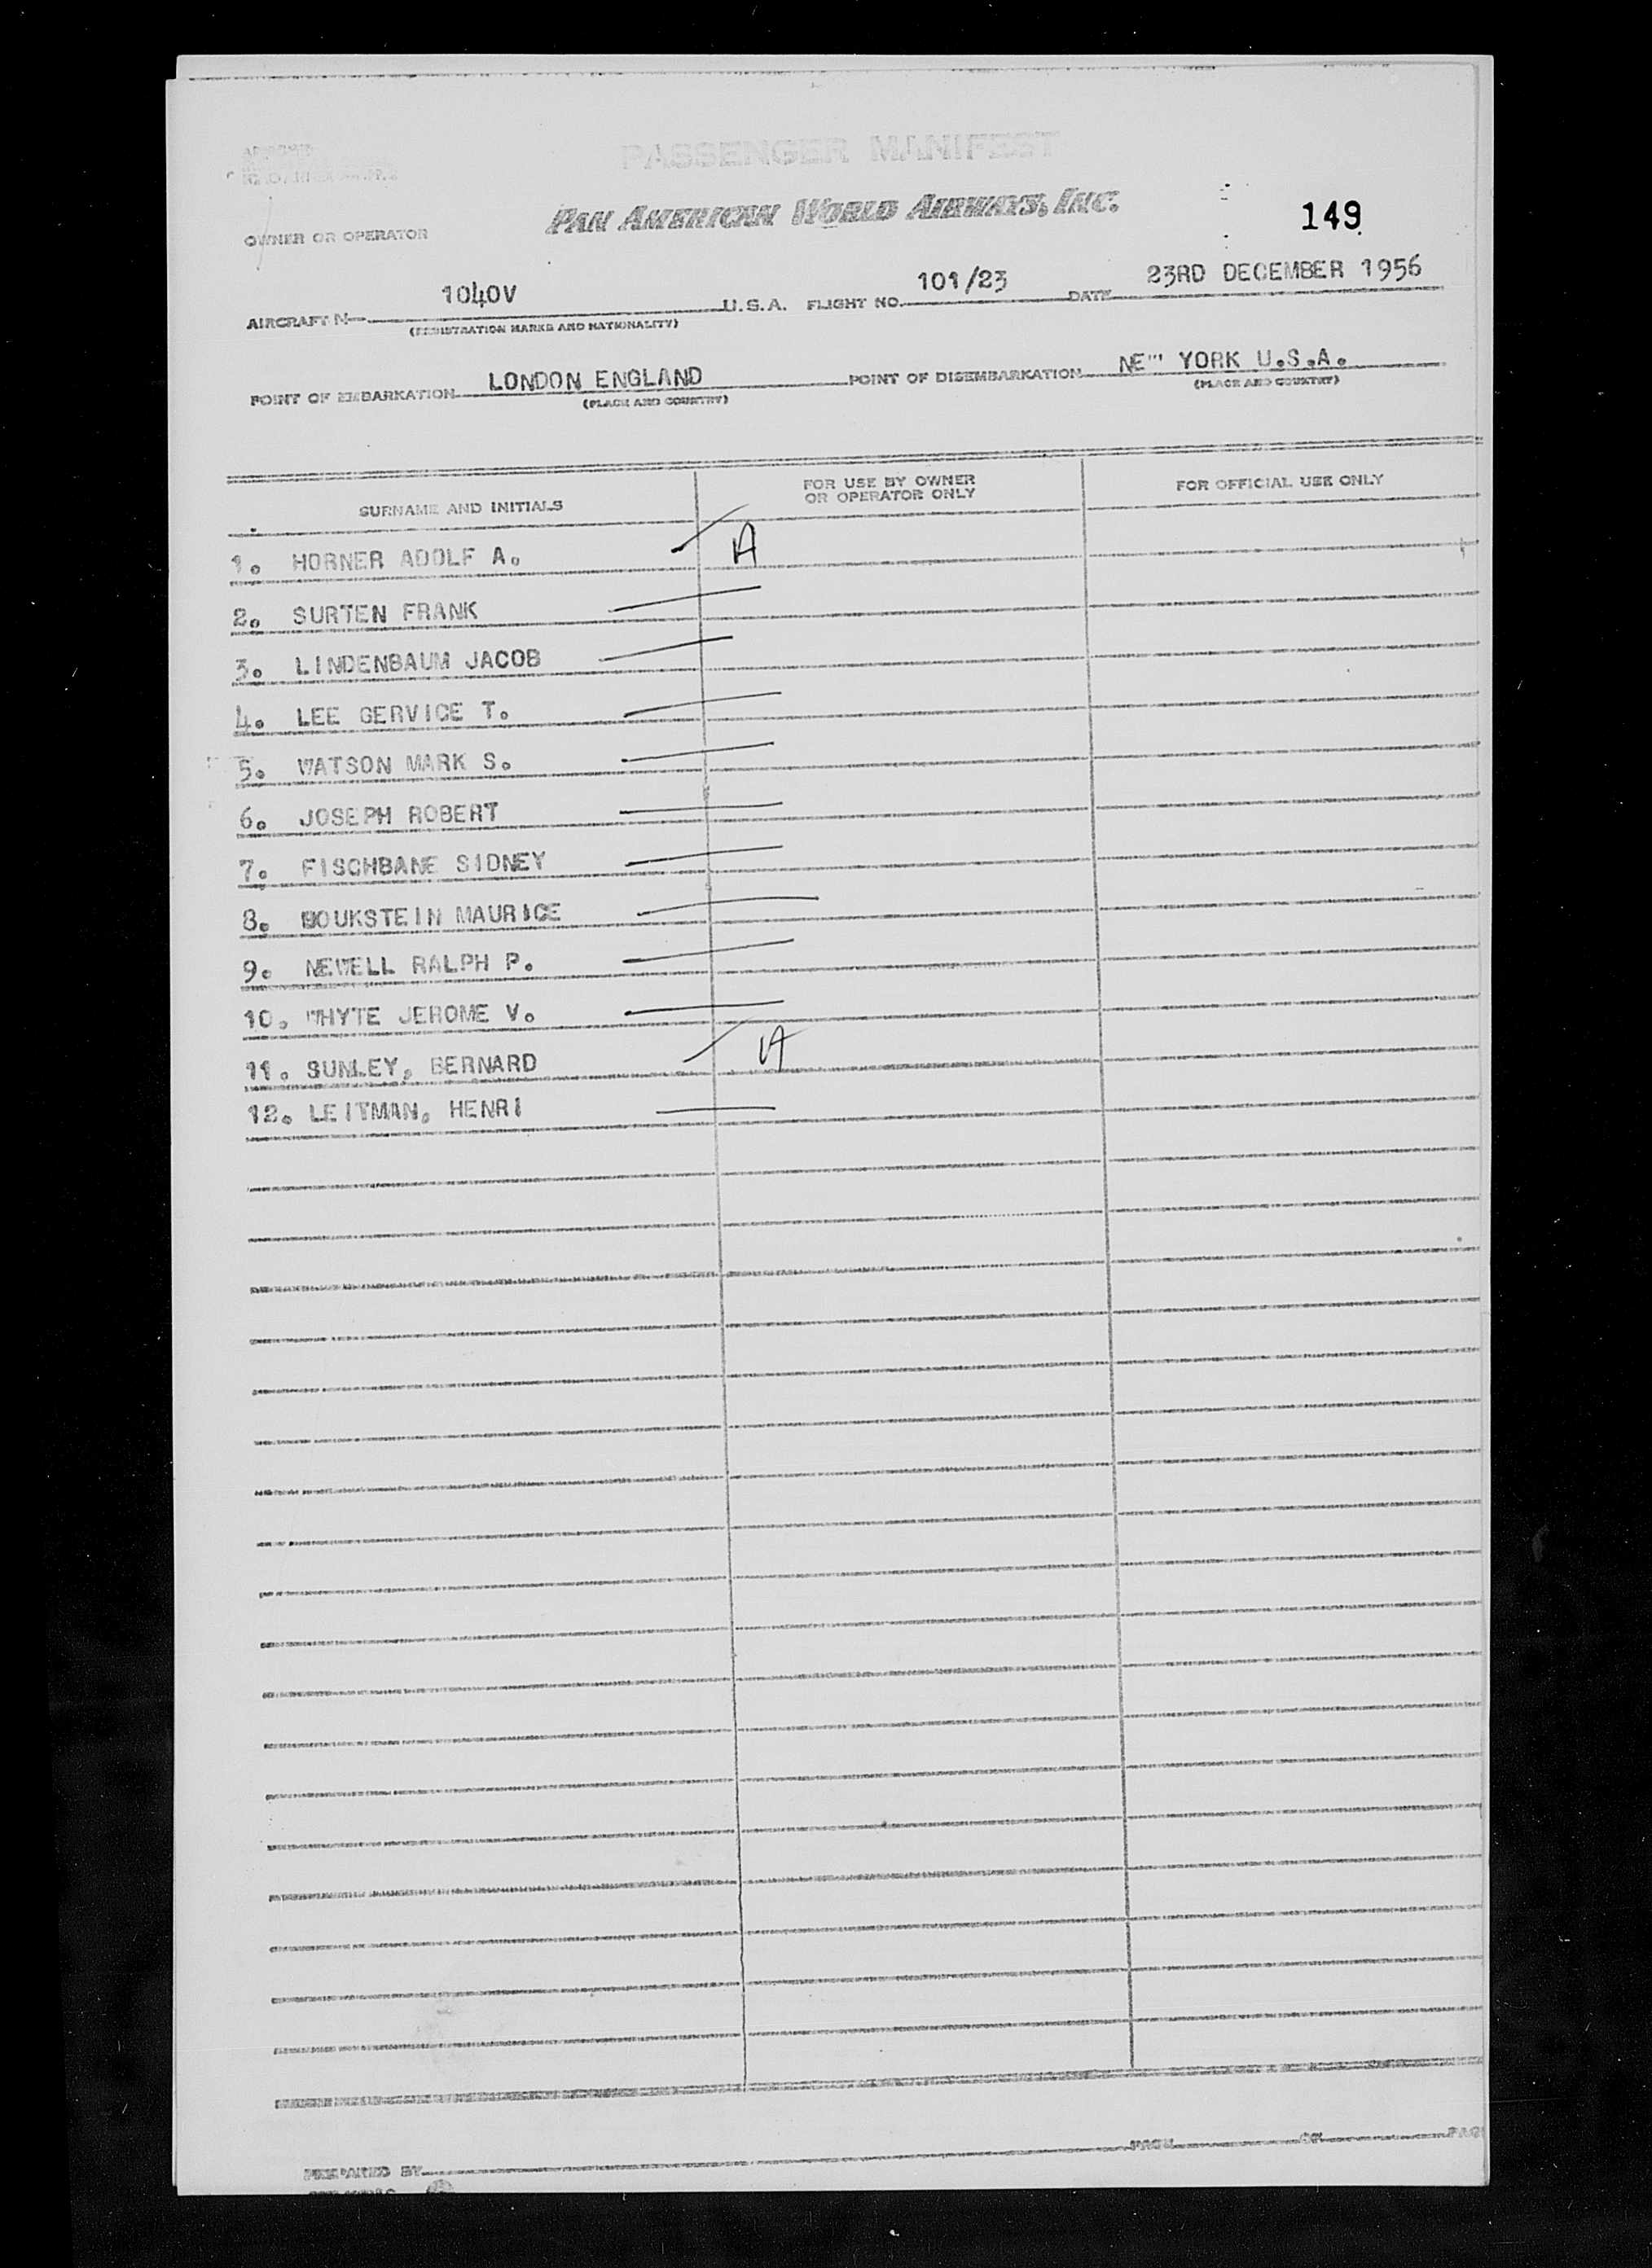 PASSENGER MANIFEST
PAN AMERICAN WORLD AIRWAYS, INC.
149
OWNER OR OPERATOR
AIRCRAFT N 1040V U.S.A. FLIGHT NO. 101/23 DATE 23RD DECEMBER 1956
(REGISTRATION MARKS AND NATIONALITY)
POINT OF EMBARKATION LONDON ENGLAND POINT OF DISEMBARKATION NE''' YORK U.S.A.
(PLACE AND COUNTRY) (PLACE AND COUNTRY)
SURNAME AND INITIALS FOR USE BY OWNER OR OPERATOR ONLY FOR OFFICIAL USE ONLY
1. HORNER ADOLF A. A
2. SURTEN FRANK
3. LINDENBAUM JACOB
4. LEE GERVICE T.
5. WATSON MARK S.
6. JOSEPH ROBERT
7. FISCHBANE SIDNEY
8. BOUKSTEIN MAURICE
9. NEWELL RALPH P.
10. WHYTE JEROME V.
11. SUNLEY, BERNARD A
12. LEITMAN, HENRI
PAGE OF PAG
PREPARED BY